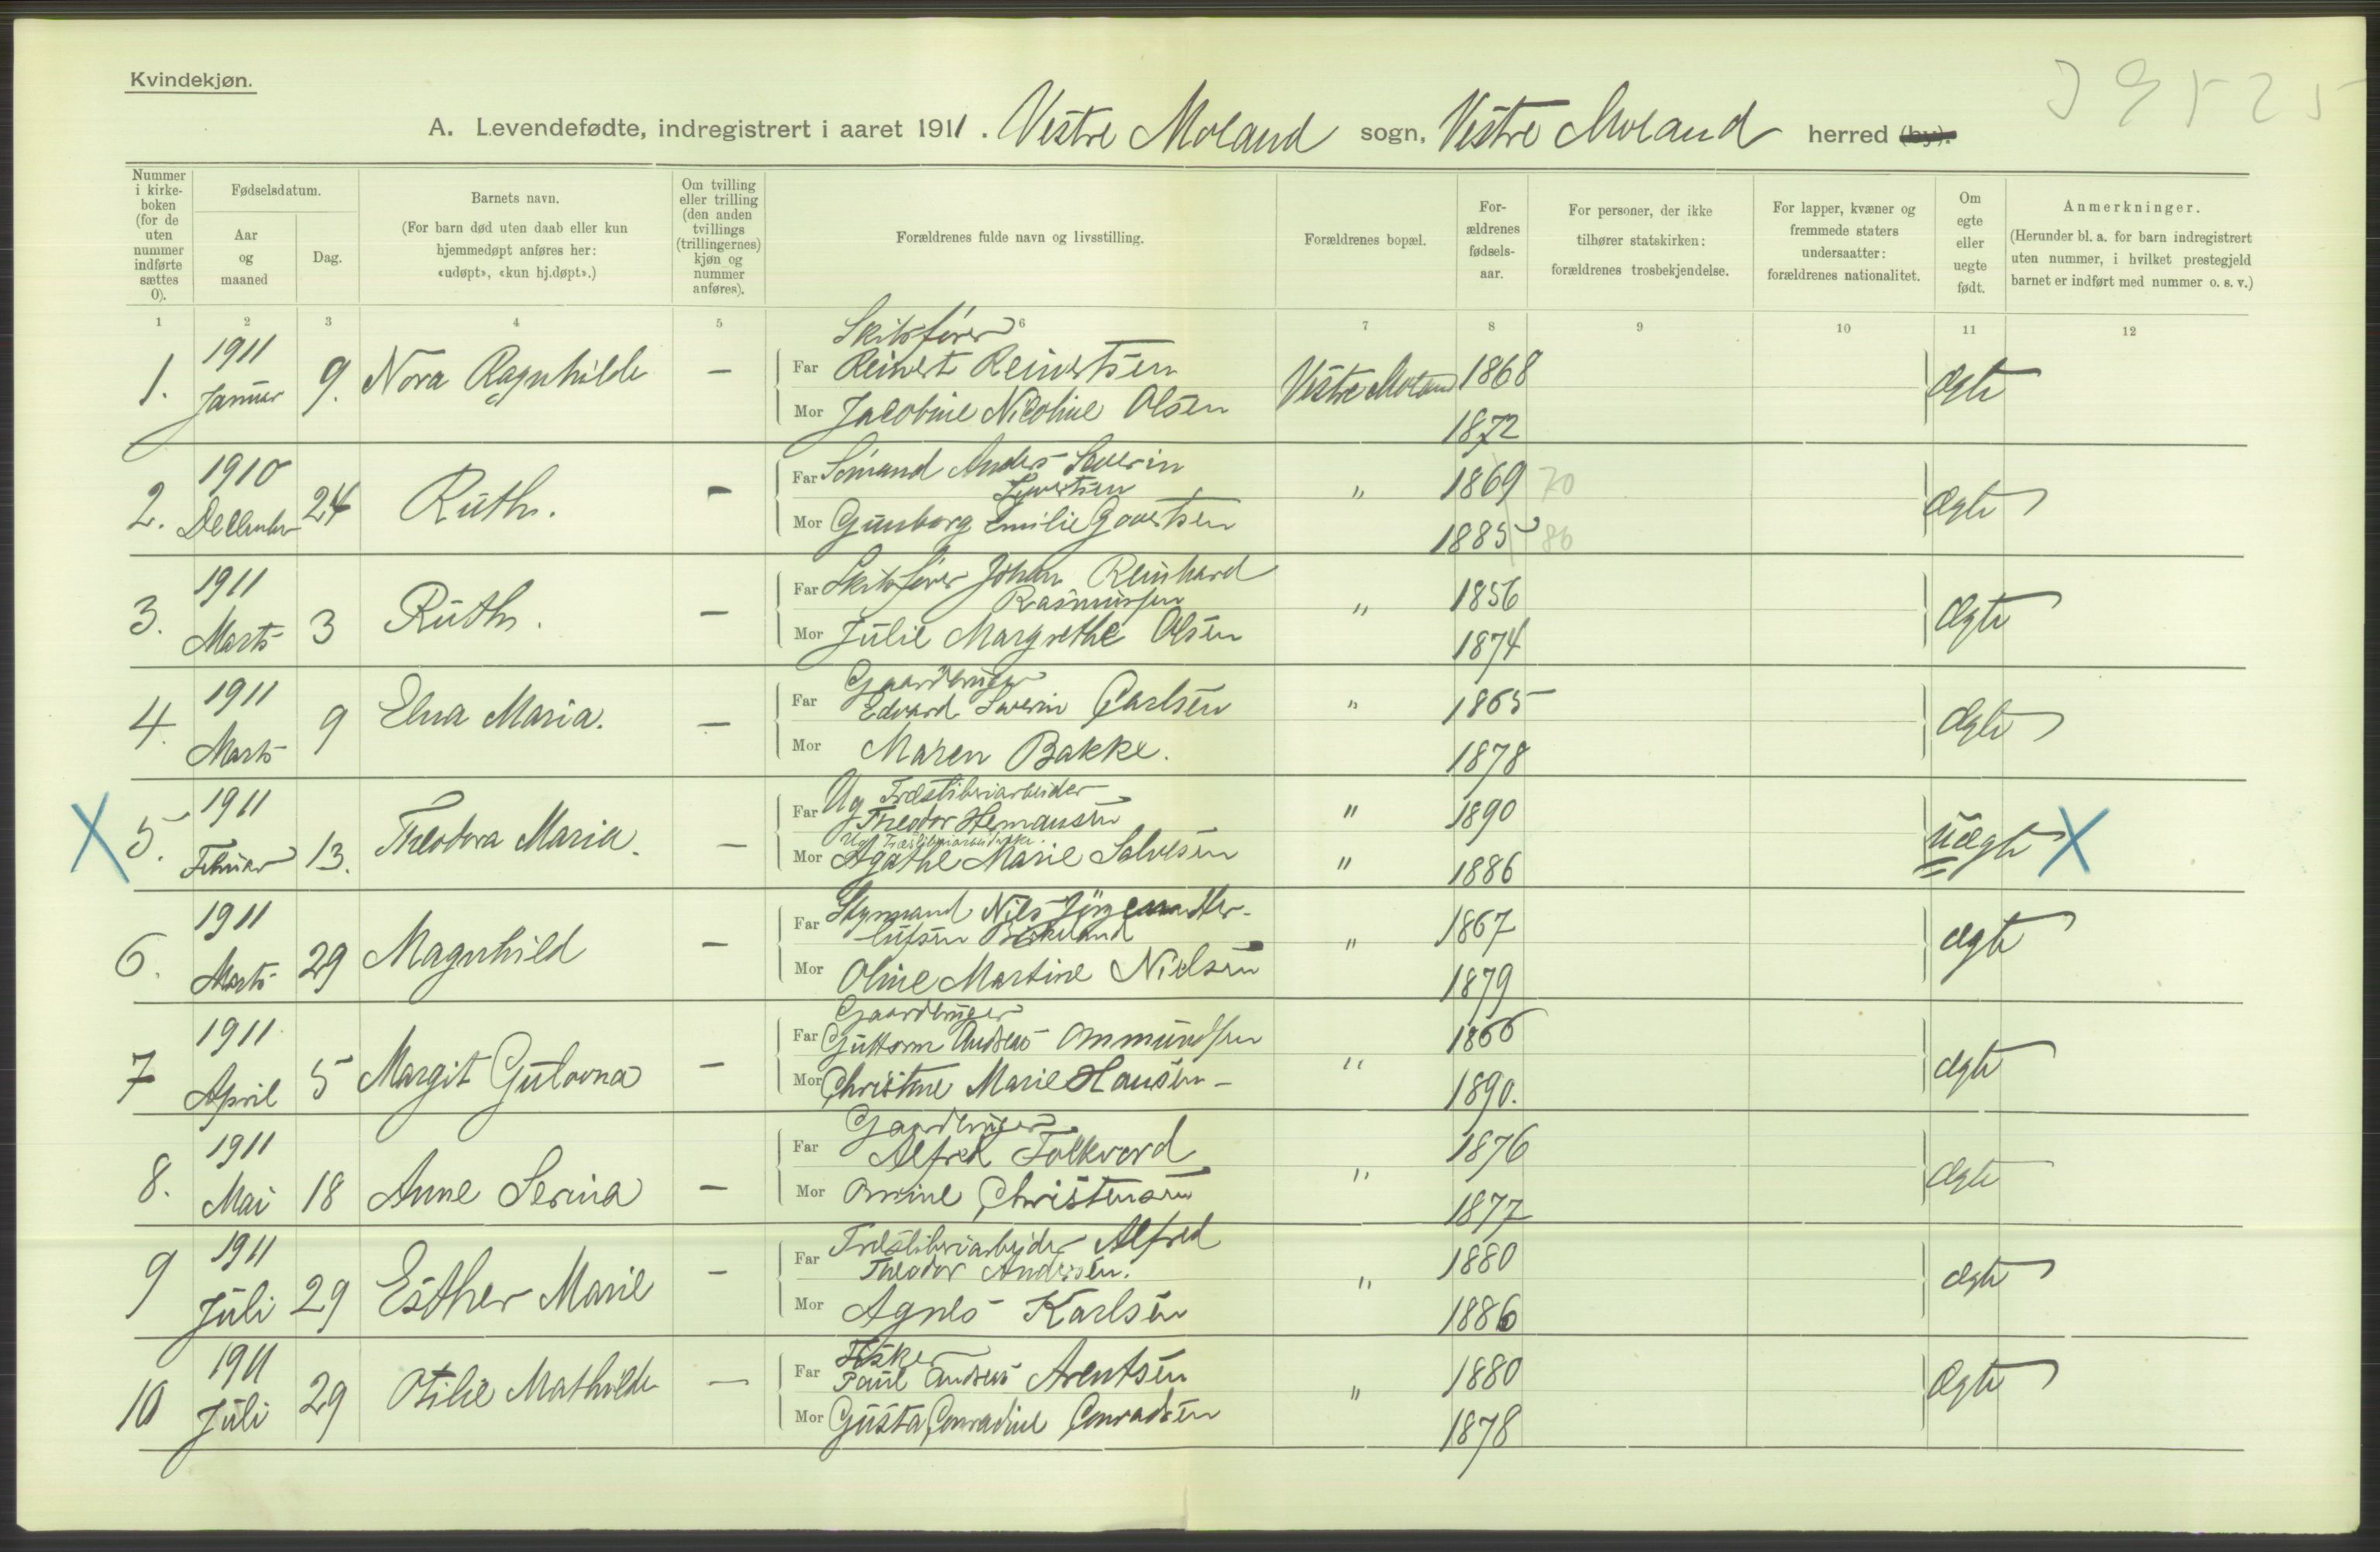 Kvindekjøn.
J 9525
A. Levendefødte, indregistrert i aaret 1911. Vestre Moland sogn, Vestre Moland herred (by).
Nummer i kirke-boken (for de uten nummer indførte sættes 0).
Fødselsdatum.
Aar og maaned
Dag.
Barnets navn.
(For barn død uten daab eller kun hjemmedøpt anføres her: «udøpt», «kun hj.døpt».)
Om tvilling eller trilling (den anden tvillings (trillingernes) kjøn og nummer anføres).
Forældrenes fulde navn og livsstilling.
Forældrenes bopæl.
For-ældrenes fødsels-aar.
For personer, der ikke tilhører statskirken: forældrenes trosbekjendelse.
For lapper, kvæner og fremmede staters undersaatter: forældrenes nationalitet.
Om egte eller uegte født.
Anmerkninger.
(Herunder bl. a. for barn indregistrert uten nummer, i hvilket prestegjeld barnet er indført med nummer o. s. v.)
1 2 3 4 5 6 7 8 9 10 11 12
Skibsfører
1. 1911 Januar 9. Nora Ragnhilde — Far Reinert Reinertsen Vestre Moland 1868 Ægte
Mor Jacobine Nicoline Olsen 1872
2. 1910 December 24 Ruth. — Far Sömand Anders Severin " 1869 70 Ægte
Syvertsen
Mor Gunborg Emilie Govertsen 1885 86
3. 1911 Marts 3 Ruth. — Far Skibsfører Johan Reinhard " 1856 Ægte
Rasmussen
Mor Julie Margrethe Olsen 1874
Gaardbruger
4. 1911 Marts 9 Elna Maria. — Far Edvard Severin Carlsen " 1865 Ægte
Mor Maren Bakke. 1878
X 5. 1911 Februar 13. Theodora Maria. — Far Ug Træsliberiarbeider " 1890 Uægte X
Theodor Hermansen
Ug. Træsliberiarbeiderske.
Mor Agathe Marie Salvesen " 1886
6. 1911 Marts 29 Magnhild — Far Styrmand Nils Jörgen Her- " 1867 ægte
lufsen Birkeland
Mor Oline Martine Nielsen 1879
Gaardbruger
7 1911 April 5 Margit Gulovna — Far Guttorm Andreas Ommundsen " 1866 ægte
Mor Christine Marie Hansen — 1890.
Gaardbruger
8. 1911 Mai 18 Anne Serina — Far Alfred Folkvord " 1876 Ægte
Mor Christensen 1877
9 1911 Juli 29 Esther Marie — Far Træsliberiarbejder Alfred " 1880 ægte
Theodor Andersen.
Mor Agnes Karlsen 1886
Fisker
10 1911 Juli 29 Otilie Mathilde — Far Paul Andreas Arentsen " 1880 Ægte
Mor Gusta Conradine Conradsen 1878